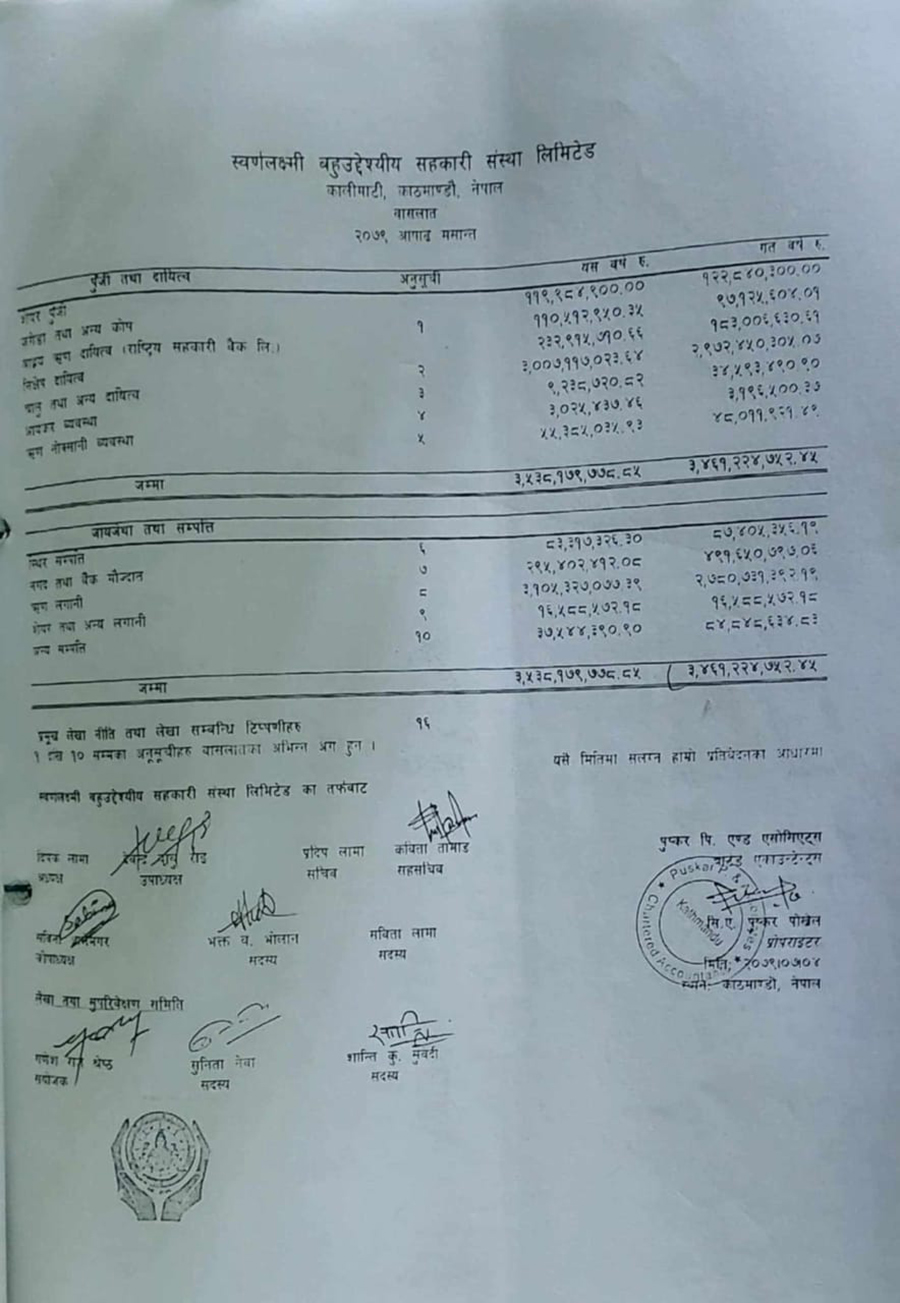 स्वर्णलक्ष्मी बहुउद्देश्यीय सहकारी संस्था लिमिटेड
कालीमाटी, काठमाण्डौ, नेपाल
वासलात
२०७९ आषाढ मसान्त
पुँजी तथा दायित्व अनुसूची यस वर्ष रु. गत वर्ष रु.
शेयर पुँजी ११९,९८४,९००.०० १२२,८४०,३००.००
जगेडा तथा अन्य कोष १ ११०,५१२,९५०.३५ ९७,१२५,६०४.०१
ऋण दायित्व (राष्ट्रिय सहकारी बैंक लि.) २३२,९१५,७१०.६६ १८३,००६,६३०.६१
निक्षेप दायित्व २ ३,००७,११७,०२३.६४ २,९७२,४५०,३०५.०७
चालु तथा अन्य दायित्व ३ ९,२३८,७२०.८२ ३४,५९३,४९०.९०
आयकर व्यवस्था ४ ३,०२५,४३७.४६ ३,१९६,५००.३७
ऋण नोक्सानी व्यवस्था ५ ५५,३८५,०३५.९३ ४८,०११,९२१.४९
जम्मा ३,५३८,१७९,७७८.८५ ३,४६१,२२४,७५२.४५
जायजेथा तथा सम्पत्ति
स्थिर सम्पत्ति ६ ८३,३१७,३२६.३० ८७,४०५,३५६.१९
नगद तथा बैंक मौज्दात ७ २९५,४०२,४१२.०८ ४९१,६५०,७९७.०६
ऋण लगानी ८ ३,१०५,३२७,०७७.३९ २,७८०,७३१,३९२.१९
शेयर तथा अन्य लगानी ९ १६,५८८,५७२.१८ १६,५८८,५७२.१८
अन्य सम्पत्ति १० ३७,५४४,३९०.९० ८४,८४८,६३४.८३
जम्मा ३,५३८,१७९,७७८.८५ ३,४६१,२२४,७५२.४५
प्रमुख लेखा नीति तथा लेखा सम्बन्धि टिप्पणीहरु १६
१ देखि १० सम्मका अनुसूचीहरु वासलातका अभिन्न अंग हुन ।
यसै मितिमा संलग्न हाम्रो प्रतिवेदनका आधारमा
स्वर्णलक्ष्मी बहुउद्देश्यीय सहकारी संस्था लिमिटेड का तर्फबाट
दिपक लामा प्रदिप लामा कविता तामाङ
अध्यक्ष उपाध्यक्ष सचिव सहसचिव
पुष्कर पि. एण्ड एसोसिएट्स
चार्टर्ड एकाउन्टेन्ट्स
Puskar P. & Associates
Kathmandu
Chartered Accountants
सि.ए. पुष्कर पोखेल
प्रोपराइटर
मिति: २०७९।०५।०४
स्थान: काठमाण्डौ, नेपाल
सविता भक्त ब. भोलान सविता लामा
कोषाध्यक्ष सदस्य सदस्य
लेखा तथा सुपरिवेक्षण समिति
गणेश श्रेष्ठ सुनिता नेवा शान्ति कु. सुवेदी
संयोजक सदस्य सदस्य